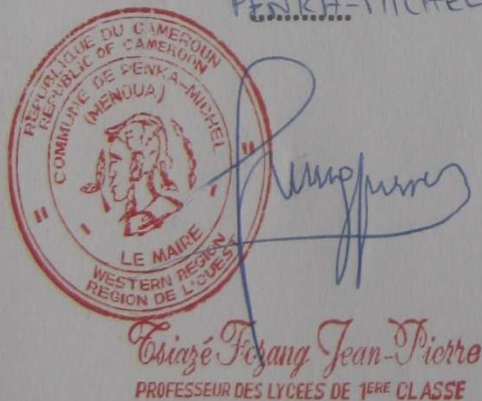 PENKA-MICHEL
REPUBLIQUE DU CAMEROUN
REPUBLIC OF CAMEROON
COMMUNE DE PENKA-MICHEL
(MENOUA)
LE MAIRE
WESTERN REGION
REGION DE L'OUEST
Tsiazé Fozang Jean-Pierre
PROFESSEUR DES LYCEES DE 1ERE CLASSE